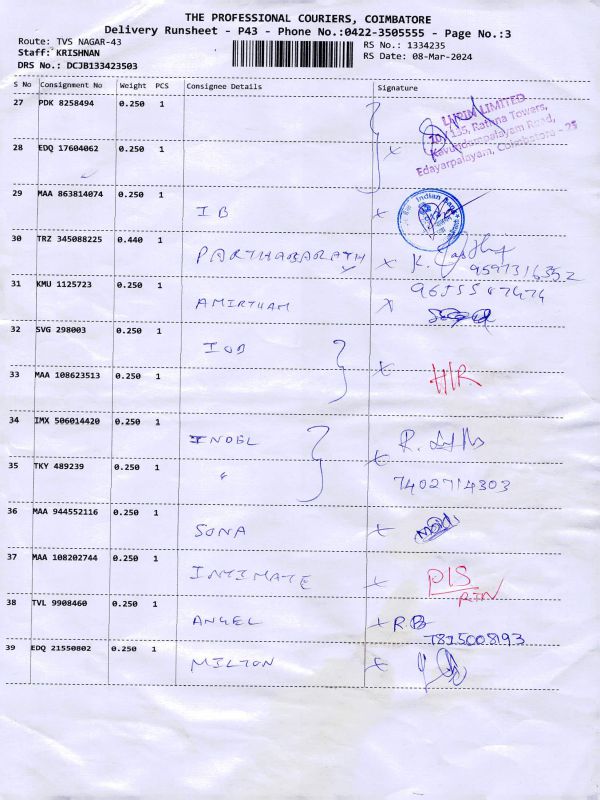 THE PROFESSIONAL COURIERS, COIMBATORE
Delivery Runsheet - P43 - Phone No.:0422-3505555 - Page No.:3
Route: TVS NAGAR-43 RS No.: 1334235
Staff: KRISHNAN RS Date: 08-Mar-2024
DRS No.: DCJB133423503
S No Consignment No Weight PCS Consignee Details Signature
27 PDK 8258494 0.250 1
LIMITED
Ratna Towers,
28 EDQ 17604062 0.250 1
Road,
Edayarpalayam, Coimbatore - 25
29 MAA 863814074 0.250 1
IB Indian Bank
30 TRZ 345088225 0.440 1
PARTHASARATHY K.
9597316352
31 KMU 1125723 0.250 1
AMIRTHAM
32 SVG 298003 0.250 1
IOB
33 MAA 108623513 0.250 1
H/R.
34 IMX 506014420 0.250 1
R.
35 TKY 489239 0.250 1
"
7402714303
36 MAA 944552116 0.250 1
SONA
37 MAA 108202744 0.250 1
INTIMATE D/S
RTN
38 TVL 9908460 0.250 1
ANGEL RB
7815008193
39 EDQ 21550802 0.250 1
MILTON